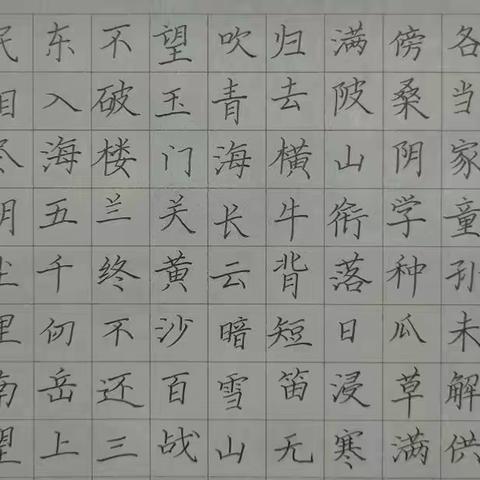 各当家童孙未解供
傍桑阴学种瓜草满
满陂山衔落日浸寒
归去横牛背短笛无
吹青海长云暗雪山
望玉门关黄沙百战
不破楼兰终不还三
东入海五千仞岳上
民泪尽胡尘里南望